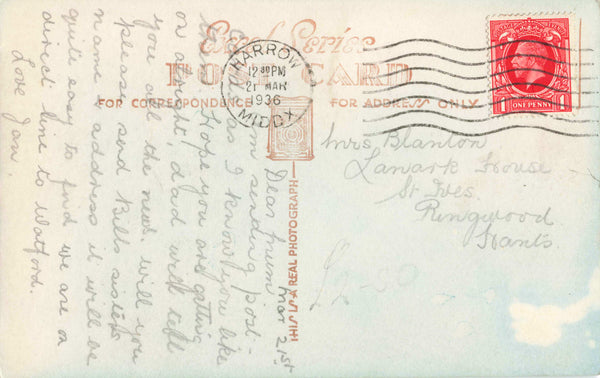 Excel Series
POST CARD
FOR CORRESPONDENCE
FOR ADDRESS ONLY
HARROW
12 30 PM
21 MAR
1936
MIDDX
POSTAGE REVENUE
ONE PENNY
1 1
THIS IS A REAL PHOTOGRAPH
Mrs. Blanton
Lanark House
St Ives.
Ringwood
Hants.
£2-50
Mar 21st
Dear Mum
Am sending post-
card as I know you like
Hope you are getting
on alright, dad will tell
you all the news. will you
please send Bills sisters
name & address it will be
quite easy to find we are on
direct line to Watford.
Love Jan.